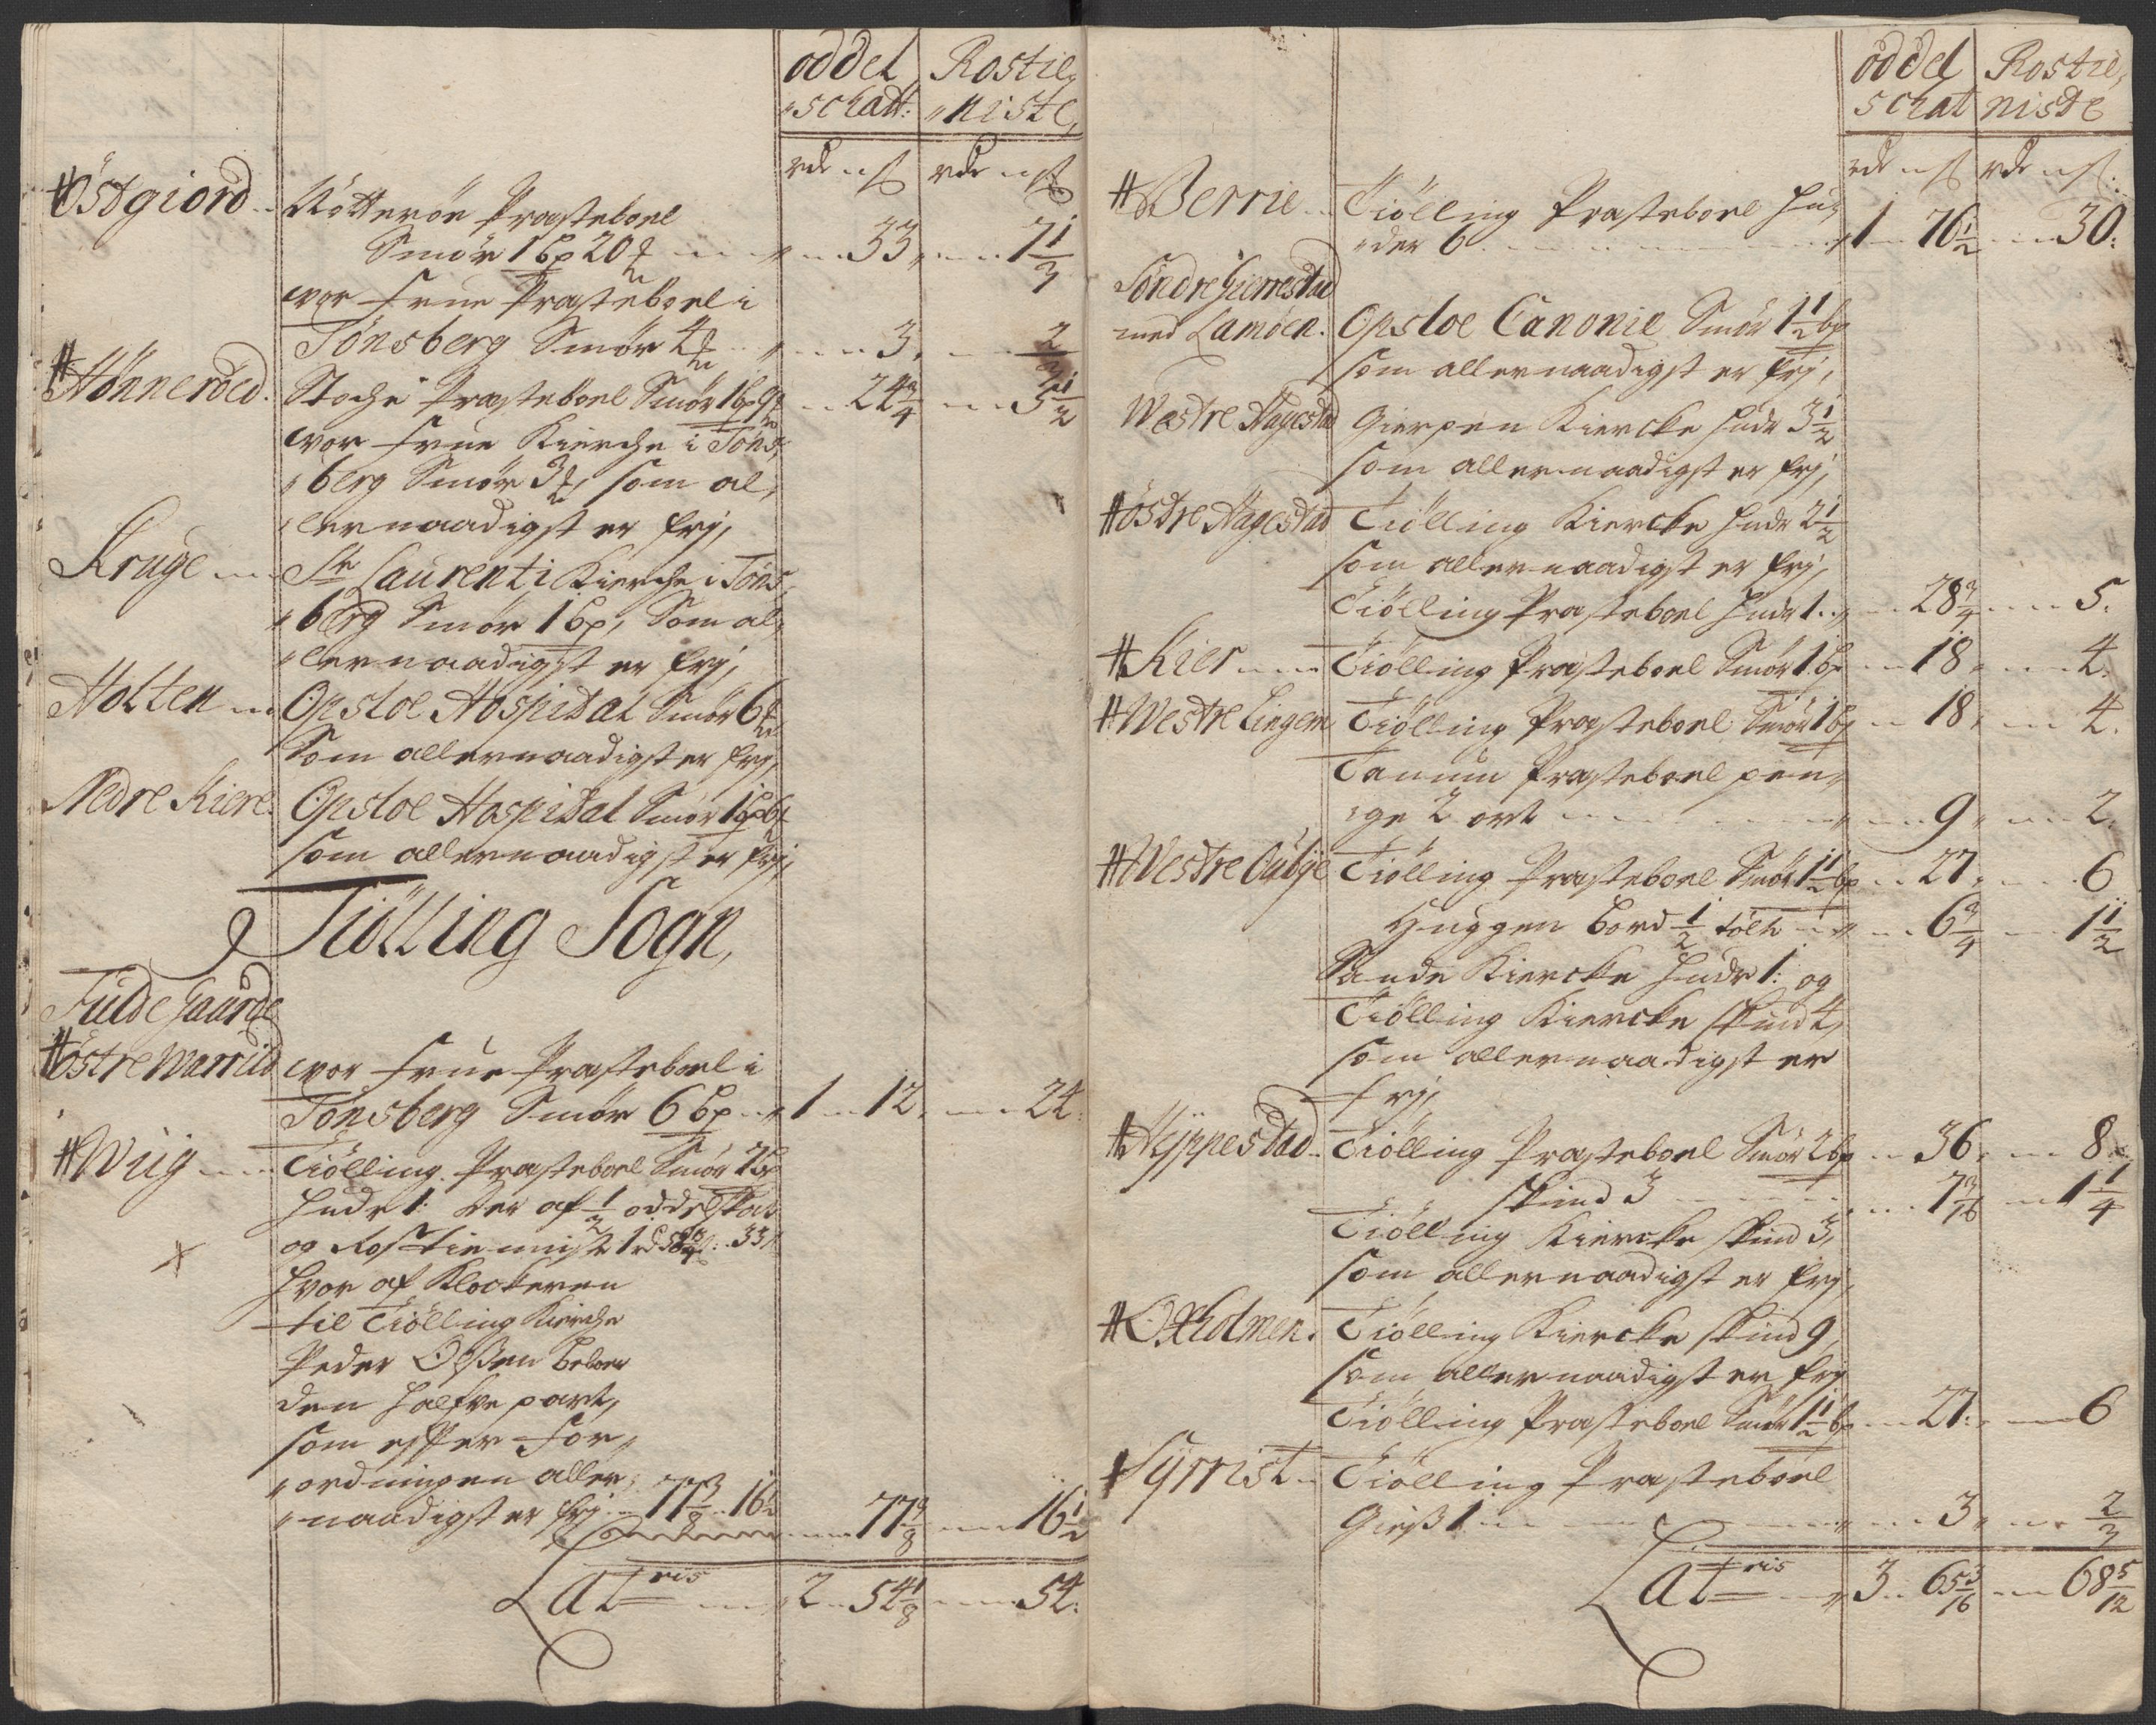 oddel Rostie
schatt: niste,
rdr ß rdr ß
# Östgiord Nötterön Præsteboel
Smör 1 bp 20 # 33 7 1/3
vor frue Præsteboel i
Tönsberg Smör 4 # 3 2/3
# Hönneröed. Stoche Præsteboel Smör 1 bp 9 # 24 3/4 5 1/2
vor frue Kierche i Töns,
berg Smör 3 #, som al,
lernaadigst er frj,
Kruge St Laurenti Kierche i Töns,
berg Smör 1 bp, Som al,
lernaadigst er frj,
Holten Opsloe Hospital Smör 6 #
Som allernaadigst er frj,
Nedre Kiere. Opsloe Hospital Smör 1 bp 6 #
som allernaadigst er frj,
Tiölling Sogn,
Fulde Gaarde
# östre Warriid vor frue Præsteboel i
Tönsberg Smör 6 bp 1 12. 24.
# Wiig Tiölling Præsteboel Smör 2 bp
Hudr 1: der af 1/2 oddelskat
og Rostieniste 1 rd 58 3/4 ß: 33
Hvor af Klockeren
til Tiölling Kierche
Peder Olßen beboer
den halfve part,
som efter for,
ordningen aller,
naadigst er frj 77 3/8 16 1/2 77 3/8 16 1/2
Lat ris 2 54 1/8 54.
oddel Rostie,
schat niste
rdr ß rdr ß:
# Berrie Tiölling Præsteboel Hu,
der 6 1 76 1/2 30.
Söndre Gierrestad
med Lamöen. Opsloe Canonie Smör 1 1/2 bp
som allernaadigst er frj,
Wæstre Hagestad Gierpen Kiercke Hudr 3 1/2
som allernaadigst er frj,
# östre Hagestad Tiölling Kiercke Hudr 2 1/2
som allernaadigst er frj,
Tiölling Præsteboel Hudr 1. 28 3/4 5.
# Kier Tiölling Præsteboel Smör 1 bp 18 4.
# Westre Lingem Tiölling Præsteboel Smör 1 bp 18. 4.
Tanum Præsteboel pen,
ge 2 ort 9 2.
# Westre Aubye Tiölling Præsteboel Smör 1 1/2 bp 27. 6
Huggen bord 1/2 tölt 6 3/4 1 1/2
Sande Kiercke Hudr 1: og
Tiölling Kiercke skind 4,
som allernaadigst er
frj,
# Hÿppestad Tiölling Præsteboel Smör 2 bp 36. 8.
skind 3 7 3/16 1 1/4
Tiölling Kiercke skind 3,
som allernaadigst er frj,
# Oxholmen. Tiölling Kiercke skind 9,
som allernaadigst er frj
Tiölling Præsteboel Smör 1 1/2 bp 27. 6
# Sÿrrist Tiölling Præsteböel
Gieß 1 3. 2/3
Lat ris 3 65 3/16 68 5/12